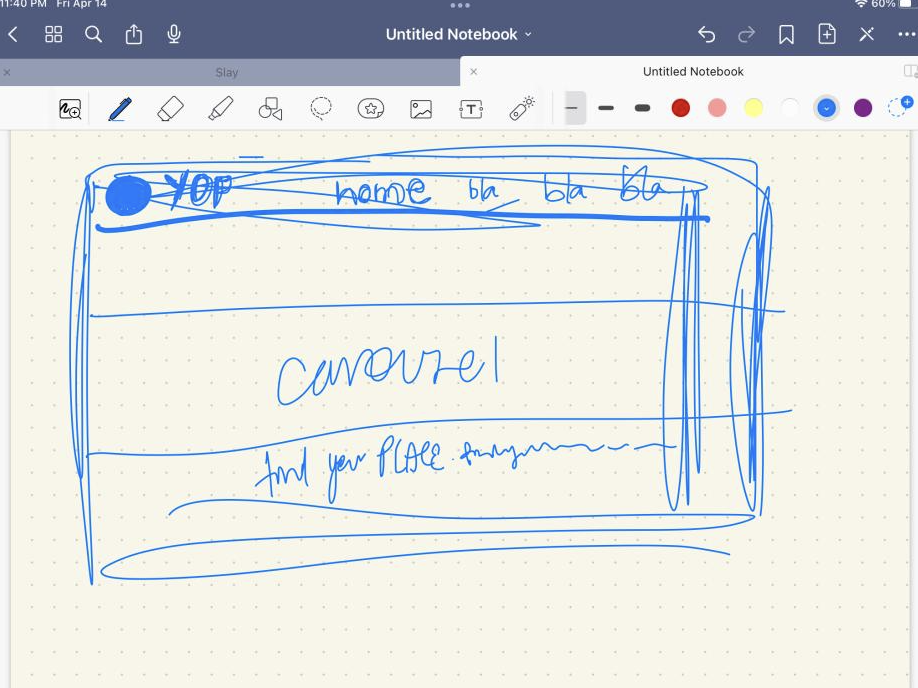 11:40 PM Fri Apr 14
60%
Untitled Notebook
Slay
Untitled Notebook
T
YOP home bla bla bla
carousel
find your PLACE